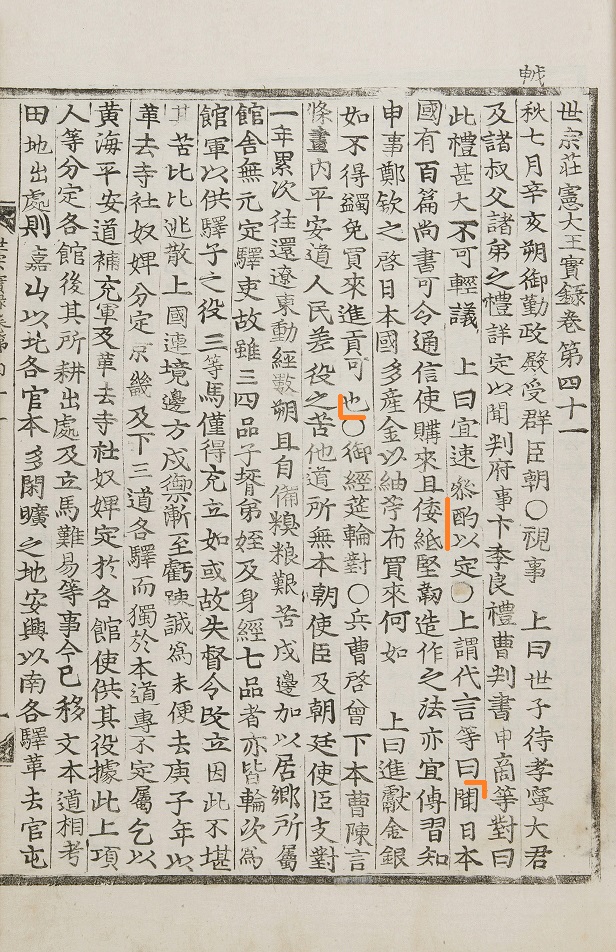 世宗莊憲大王實錄卷第四十一
秋七月辛亥朔御勤政殿受群臣朝○視事 上曰世子待孝寧大君
及諸叔父諸弟之禮詳定以聞判府事卞季良禮曹判書申商等對曰
此禮甚大不可輕議 上曰宜速叅酌以定○上謂代言等曰聞日本
國有百篇尚書可令通信使購來且倭紙堅韌造作之法亦宜傳習知
申事鄭欽之啓日本國多産金以紬苧布買來何如 上曰進獻金銀
如不得蠲免買來進貢可也○御經筵輪對○兵曹啓曾下本曹陳言
條畫內平安道人民差役之苦他道所無本朝使臣及朝廷使臣支對
一年累次往還遼東動經數朔且自備糗粮艱苦戍邊加以居鄕所屬
館舍無元定驛吏故雖三四品子壻弟姪及身經七品者亦皆輪次爲
館軍以供驛子之役三等馬僅得充立如或故失督令改立因此不堪
其苦比比逃散上國連境邊方戍禦漸至虧踈誠爲未便去庚子年以
革去寺社奴婢分定京畿及下三道各驛而獨於本道專不定屬乞以
黃海平安道補充軍及革去寺社奴婢定於各館使供其役據此上項
人等分定各館後其所耕出處及立馬難易等事今已移文本道相考
田地出處則嘉山以北各官本多閑曠之地安興以南各驛革去官屯